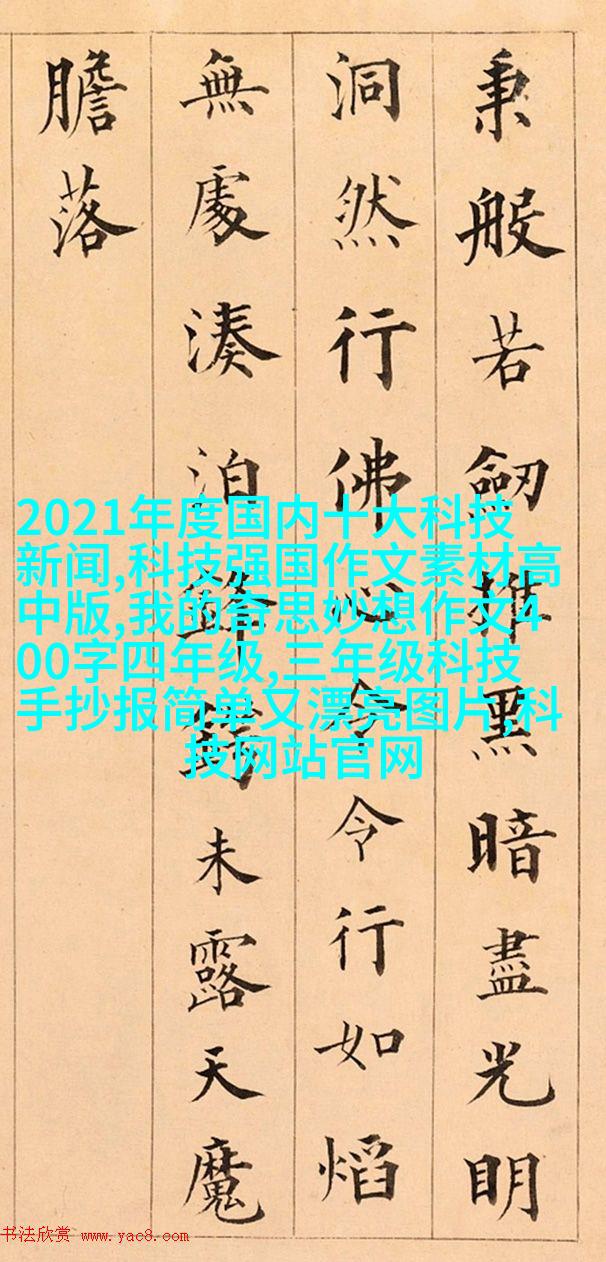 秉般若劔推黑暗盡光明
洞然行佛心令令行如熖
無處湊泊鋒鋩未露天魔
膽落
2021年度国内十大科技
新闻,科技强国作文素材高
中版,我的奇思妙想作文4
00字四年级,三年级科技
手抄报简单又漂亮图片,科
技网站官网
书法欣赏 www.yac8.com